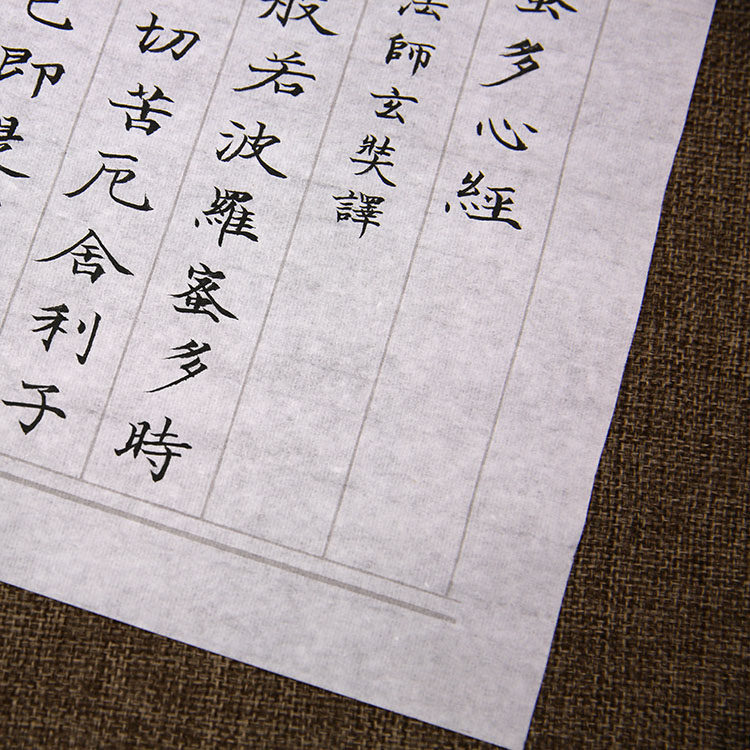 蜜多心經
法師玄奘譯
般若波羅蜜多時
切苦厄舍利子
色即是